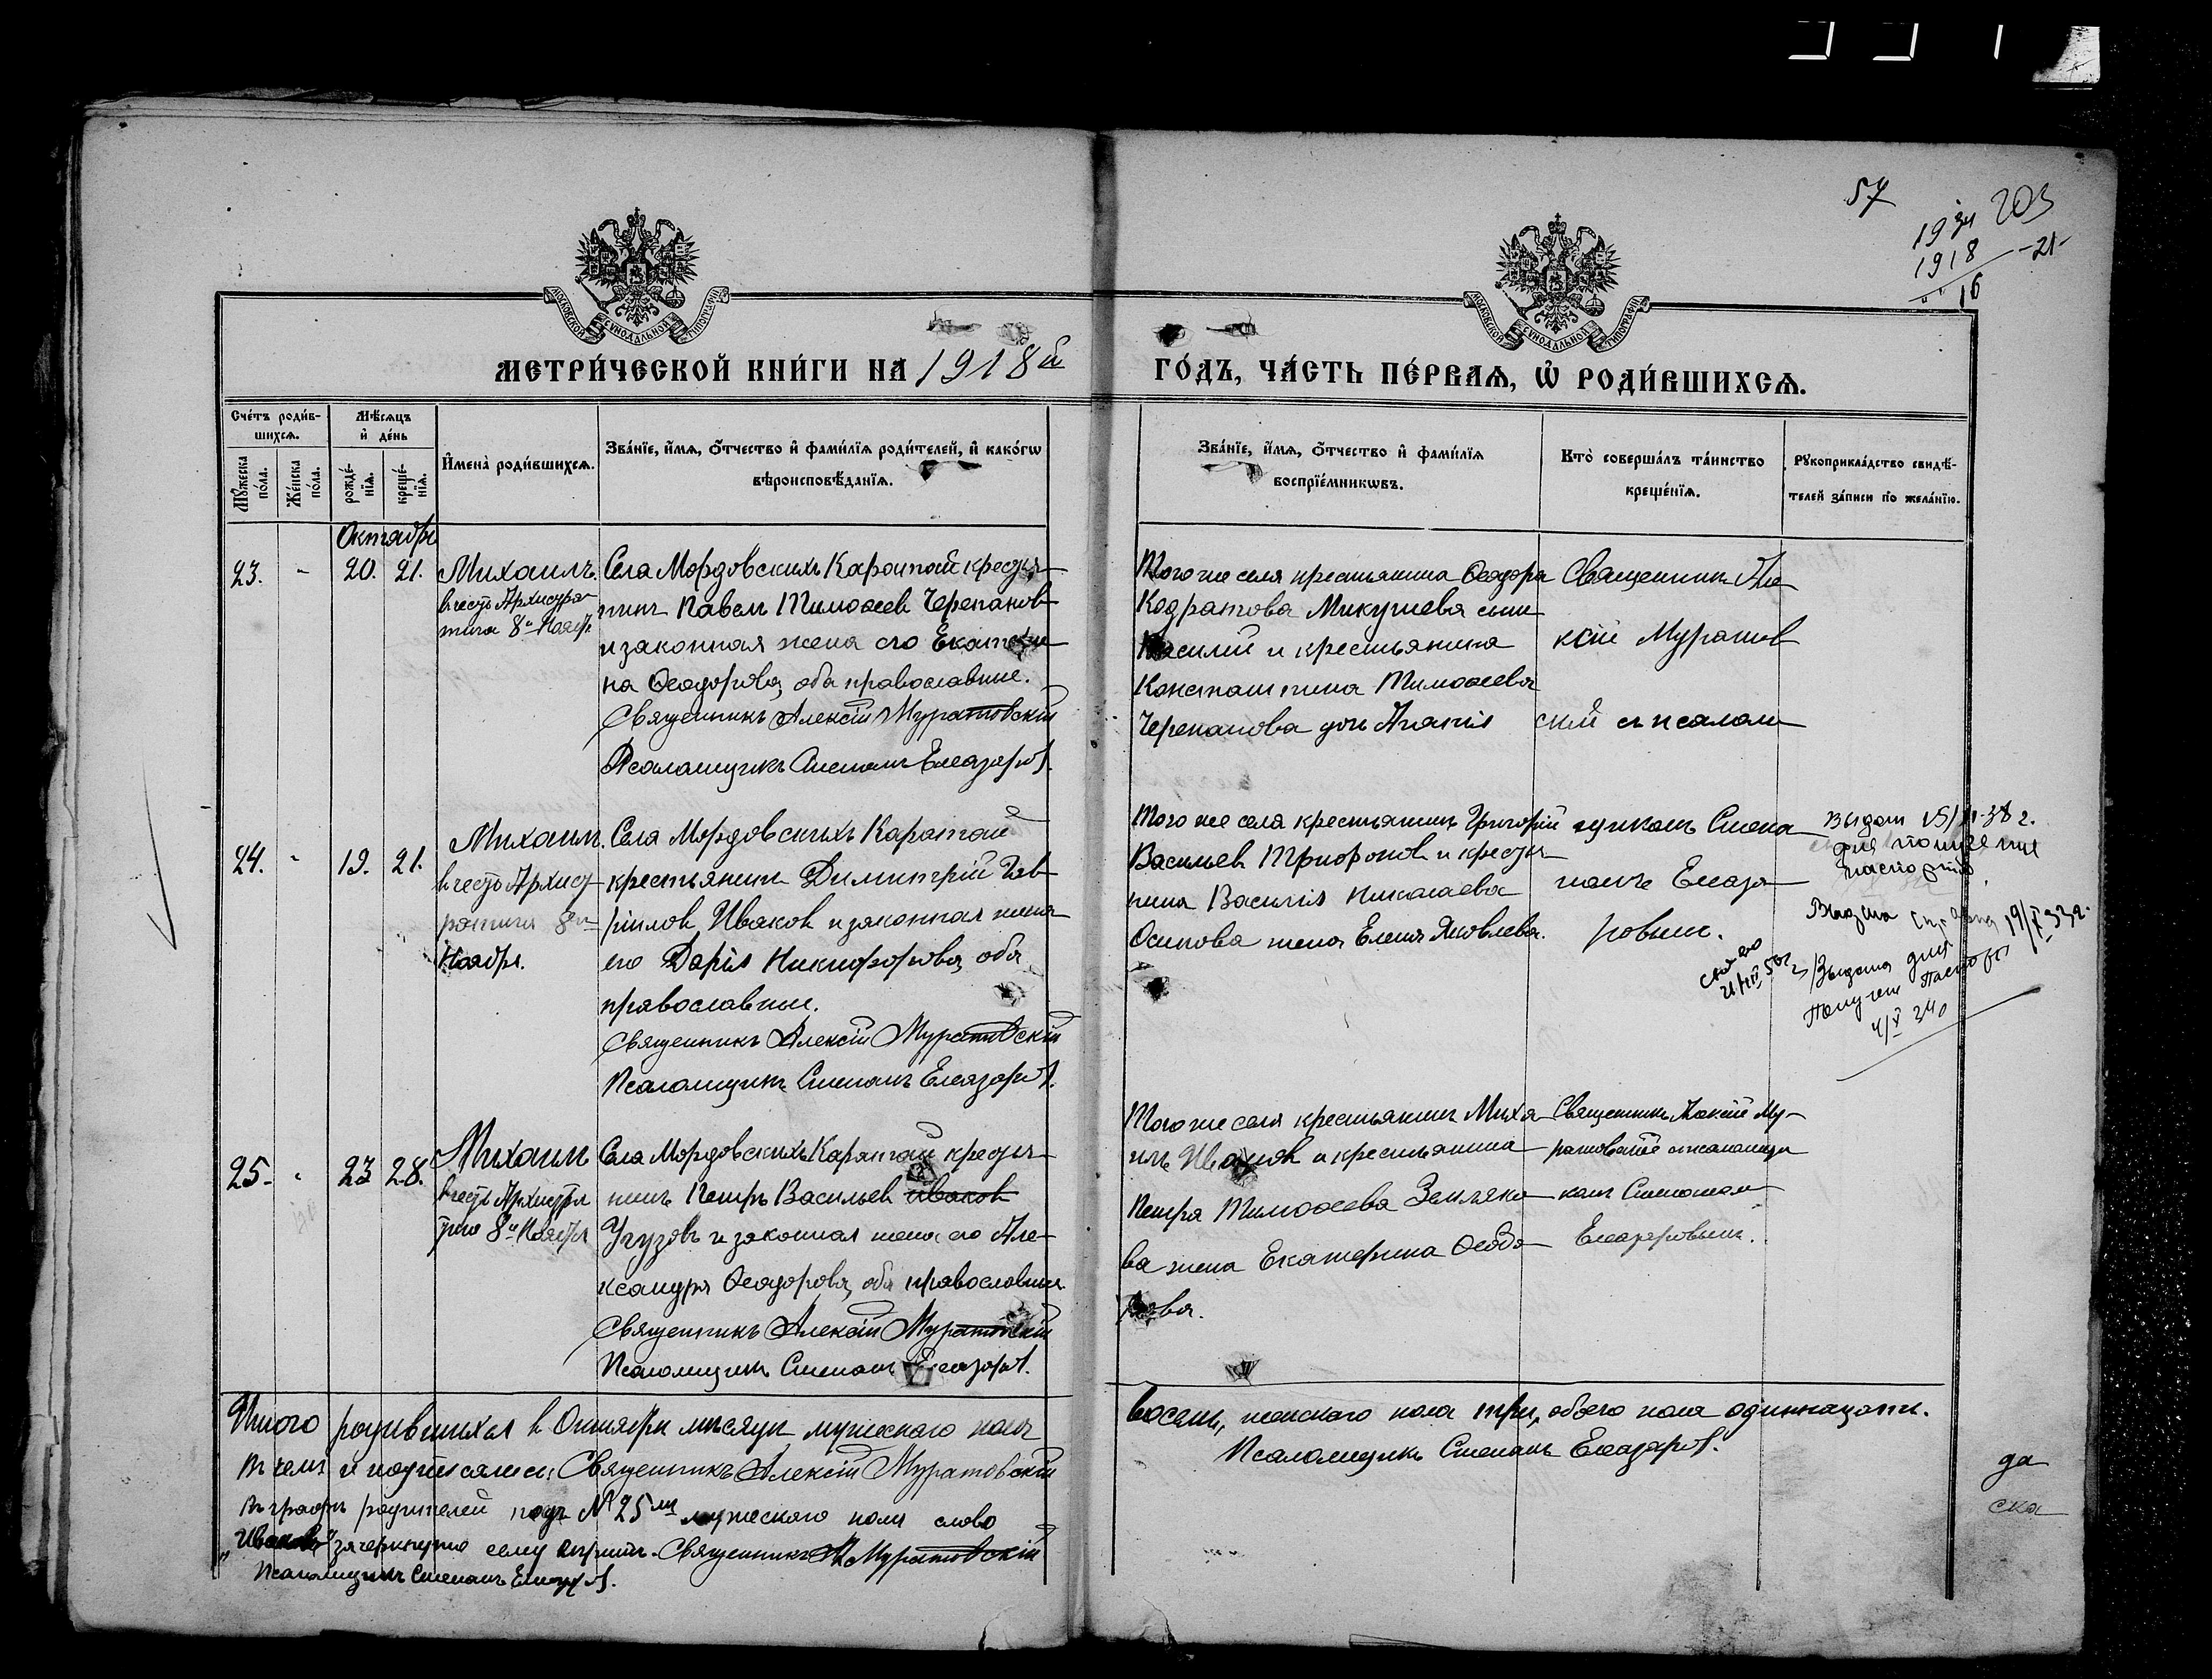 57
1934 203
1918 -21-
16
МОСКОВСКОЙ СѴНОДАЛЬНОЙ ТИПОГРАФІИ
МОСКОВСКОЙ СѴНОДАЛЬНОЙ ТИПОГРАФІИ
МЕТРИ́ЧЕСКОЙ КНИ́ГИ НА 1918й ГО́ДЪ, ЧА́СТЬ ПЕ́РВАѦ, Ѡ҆ РОДИ́ВШИХСѦ.
Сче́тъ роди́в-
шихсѧ.
Мꙋ́жеска по́ла.
Же́нска по́ла.
Мѣ́сѧцъ
и҆ де́нь
рожде́-
нїѧ.
креще́-
нїѧ.
И҆мена̀ роди́вшихсѧ.
Зва́нїе, и҆́мѧ, ѻ҆́тчество и҆ фами́лїѧ роди́телей, и҆ како́гѡ
вѣроисповѣ́данїѧ.
Зва́нїе, и҆́мѧ, ѻ҆́тчество и҆ фами́лїѧ
воспрїе́мникѡвъ.
Кто̀ соверша́лъ та́инство
креще́нїѧ.
Рꙋкоприкла́дство свидѣ́-
телей за́писи по жела́нїю.
Октября
23. - 20. 21.
Михаилъ
въ честь Архистра-
тига 8го Ноября
Села Мордовскихъ Каратай крестья-
нинъ Павелъ Тимоѳеев Черепанов
и законная жена его Екатери-
на Ѳеодорова, оба православные.
Священникъ Алексій Муратовскій
Псаломщикъ Степанъ Елеазаровъ.
Того же села крестьянина Ѳеодора
Кодратова Микушева сын
Василий и крестьянина
Константина Тимоѳеева
Черепанова дочь Ананія
Священник Але
ксій Муратов
скій съ псалом
24. - 19. 21.
Михаилъ.
въ честь Архист-
ратига 8го
Ноября.
Села Мордовскихъ Каратай
крестьянинъ Димитрій Гав-
риилов Иваков и законная жена
его Дарія Никифорова, оба
православные.
Священникъ Алексій Муратовскій
Псаломщикъ Степанъ Елеазаровъ.
Того же села крестьянинъ Григорій
Васильев Трифонов и крестья-
нина Василія Николаева
Осипова жена Елена Яковлева.
щикомъ Степа-
номъ Елеаза-
ровым.
Выдана
для получения
паспорта.
Выдана Справка 19/X 33г.
Выдана для
Получен Паспорта
4/V 340
25. - 23 28.
Михаилъ
въ честь Архистра
тига 8го Ноября
Села Мордовскихъ Каратай крестья-
нинъ Петръ Васильев Иваков
Угузовъ и законная жена его Але-
ксандра Ѳеодорова, оба православные.
Священникъ Алексій Муратовскій
Псаломщикъ Степанъ Елеазаровъ.
Того же села крестьянинъ Миха-
илъ Иваков и крестьянина
Петра Тимоѳеева Земляко-
ва жена Екатерина Ѳеодо-
рова.
Священникъ Алексій Му-
ратовскій съ псаломщи
комъ Степаном
Елеазаровым.
Итого родившихся в Октябрѣ мѣсяцѣ мужескаго пола восемь, женскаго пола три, обоего пола одиннадцать.
въ чемъ и подписались: Священникъ Алексій Муратовскій
Псаломщикъ Степанъ Елеазаровъ.
Въ графѣ родителей подъ № 25мъ мужескаго пола слово
"Иваковъ" зачеркнутое сему вѣрить. Священникъ А. Муратовскій
Псаломщикъ Степанъ Елеазаровъ.
да
ска